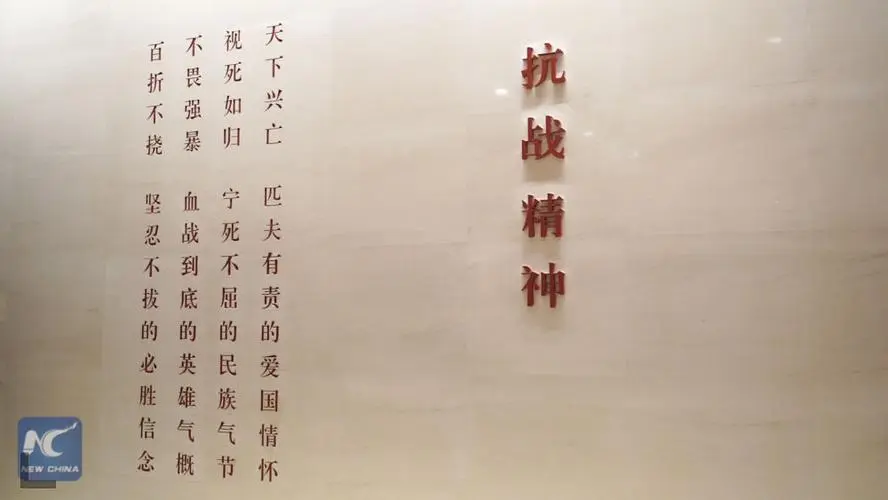 抗战精神
天下兴亡 匹夫有责的爱国情怀
视死如归 宁死不屈的民族气节
不畏强暴 血战到底的英雄气概
百折不挠 坚忍不拔的必胜信念
NC
NEW CHINA